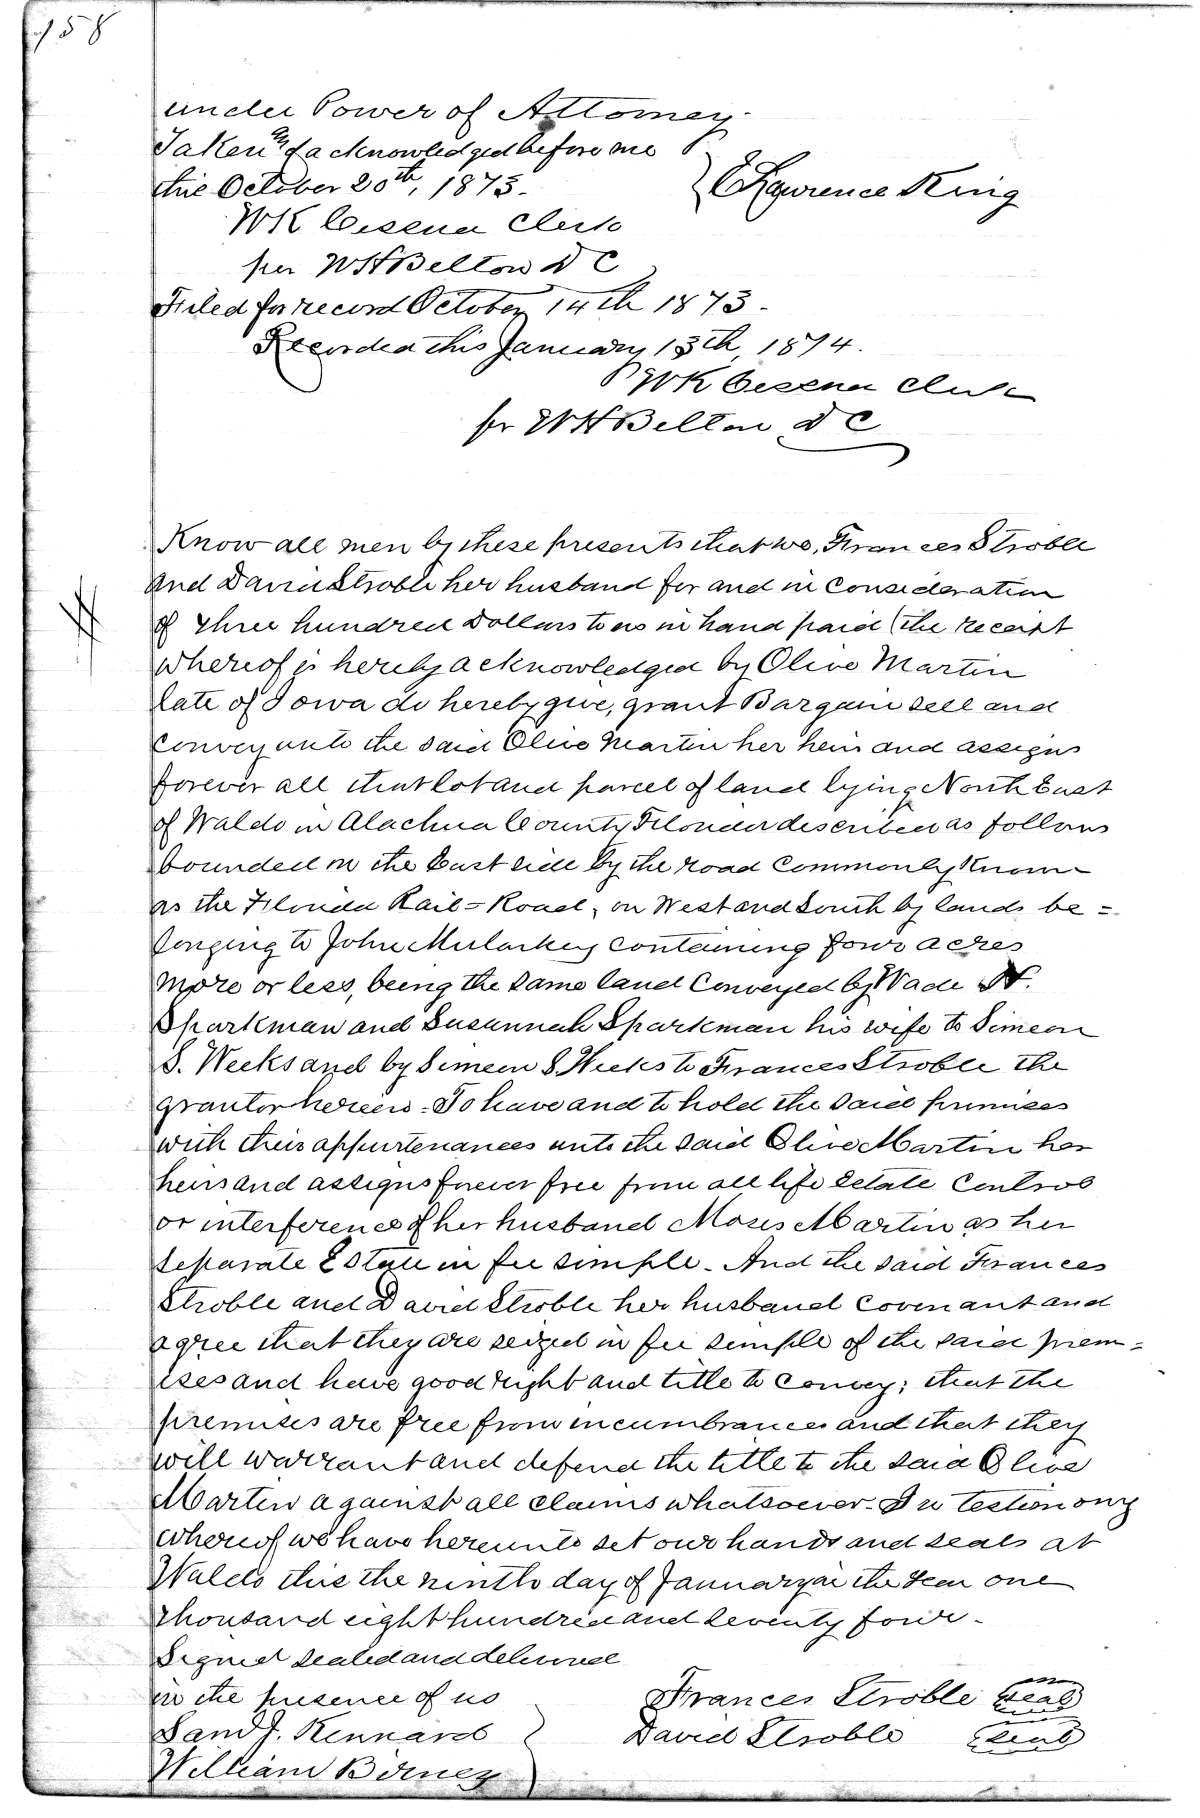 158
under Power of Attorney.
Taken & acknowledged before me
this October 20th, 1873.
E Lawrence King
WK Cessna Clerk
per WH Belton D C
Filed for record October 14th 1873.
Recorded this January 13th, 1874.
WK Cessna Clerk
per WH Belton D C
Know all men by these presents that we, Frances Stroble
and David Stroble her husband for and in Consideration
of three hundred Dollars to us in hand paid (the receipt
whereof is hereby acknowledged by Olive Martin
late of Iowa do hereby give, grant Bargain sell and
convey unto the said Olive Martin her heirs and assigns
forever all that lot and parcel of land lying North East
of Waldo in Alachua County Florida described as follows
bounded on the East side by the road Commonly Known
as the Florida Rail=Road, on West and South by lands be=
longing to John Mularkey containing four acres
more or less, being the same land Conveyed by Wade H.
Sparkman and Susannah Sparkman his wife to Simeon
S. Weeks and by Simeon S Weeks to Frances Stroble the
grantor herein. To have and to hold the said premises
with their appurtenances unto the said Olive Martin her
heirs and assigns forever free from all life Estate Control
or interference of her husband Moses Martin as her
separate Estate in fee simple. And the said Frances
Stroble and David Stroble her husband covenant and
agree that they are seized in fee simple of the said prem=
ises and have good right and title to convey; that the
premises are free from incumbrances and that they
will warrant and defend the title to the said Olive
Martin against all claims whatsoever. In testimony
whereof we have hereunto set our hands and seals at
Waldo this the ninth day of January in the year one
thousand eight hundred and seventy four.
Signed sealed and delivered
in the presence of us
Frances Stroble seal
Saml J. Kennard
David Stroble seal
William Birney